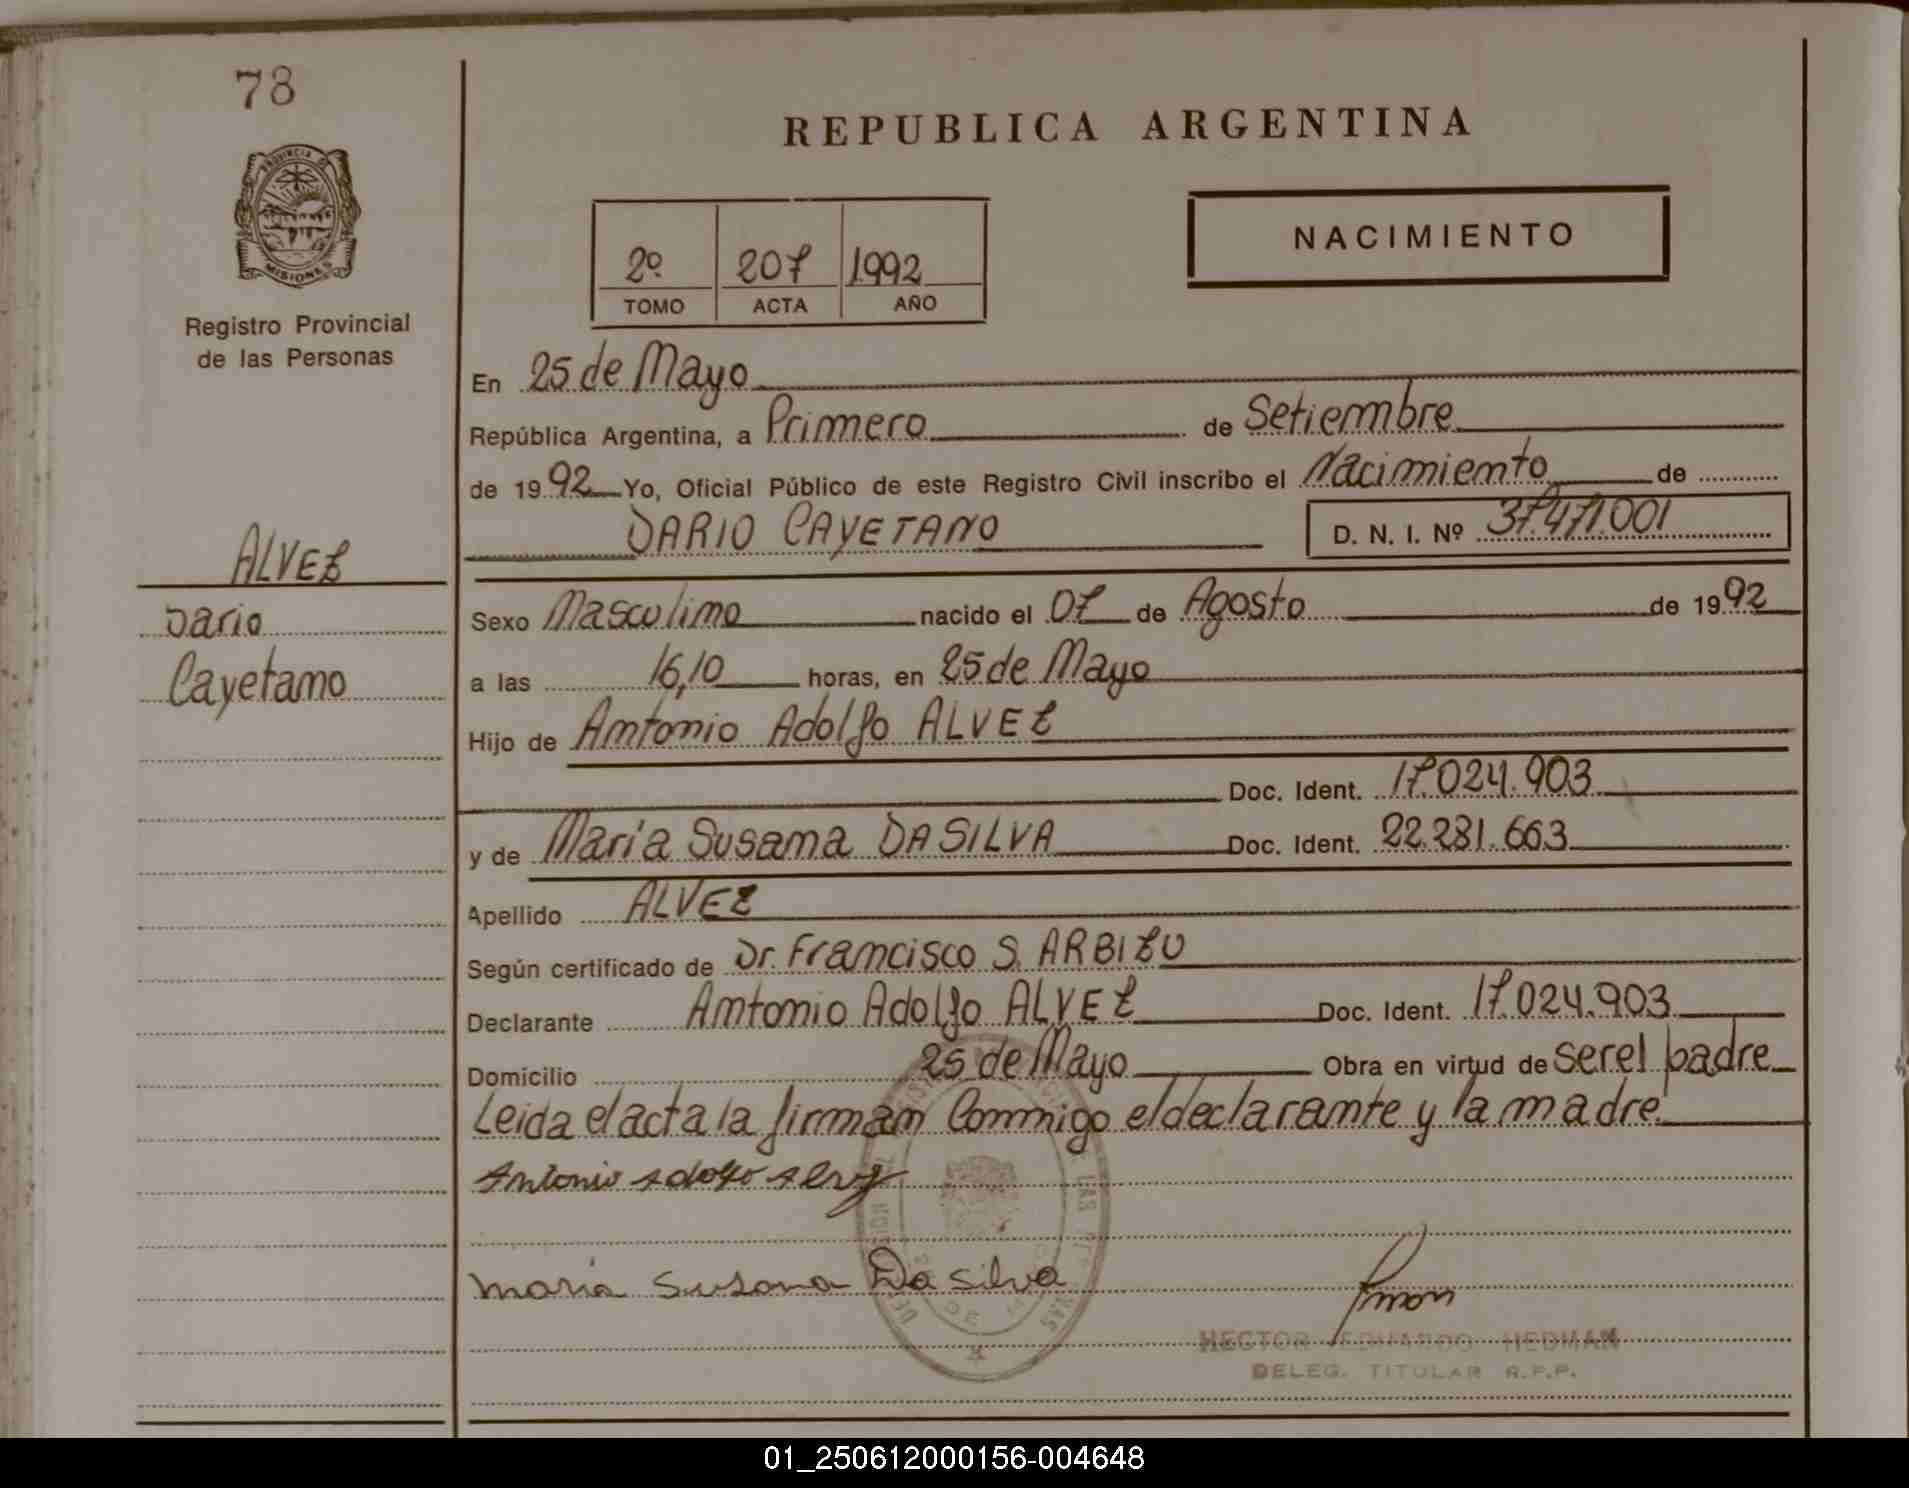 78
PROVINCIA DE
MISIONES
Registro Provincial
de las Personas
REPUBLICA ARGENTINA
NACIMIENTO
2º 207 1992
TOMO ACTA AÑO
En 25 de Mayo
República Argentina, a Primero de Setiembre
de 1992 Yo, Oficial Público de este Registro Civil inscribo el Nacimiento de
DARIO CAYETANO D. N. I. Nº 37.471.001
ALVEZ
Dario
Cayetano
Sexo Masculino nacido el 07 de Agosto de 1992
a las 16,10 horas, en 25 de Mayo
Hijo de Antonio Adolfo ALVEZ
Doc. Ident. 17.024.903
y de María Susana DA SILVA Doc. Ident. 22.281.663
Apellido ALVEZ
Según certificado de Dr. Francisco S. ARBIZU
Declarante Antonio Adolfo ALVEZ Doc. Ident. 17.024.903
Domicilio 25 de Mayo Obra en virtud de ser el padre
Leida el acta la firman Conmigo el declarante y la madre
Antonio Adolfo Alvez
maria Susana Da silva
HECTOR EDUARDO HEDMAN
DELEG. TITULAR R.P.P.
01_250612000156-004648